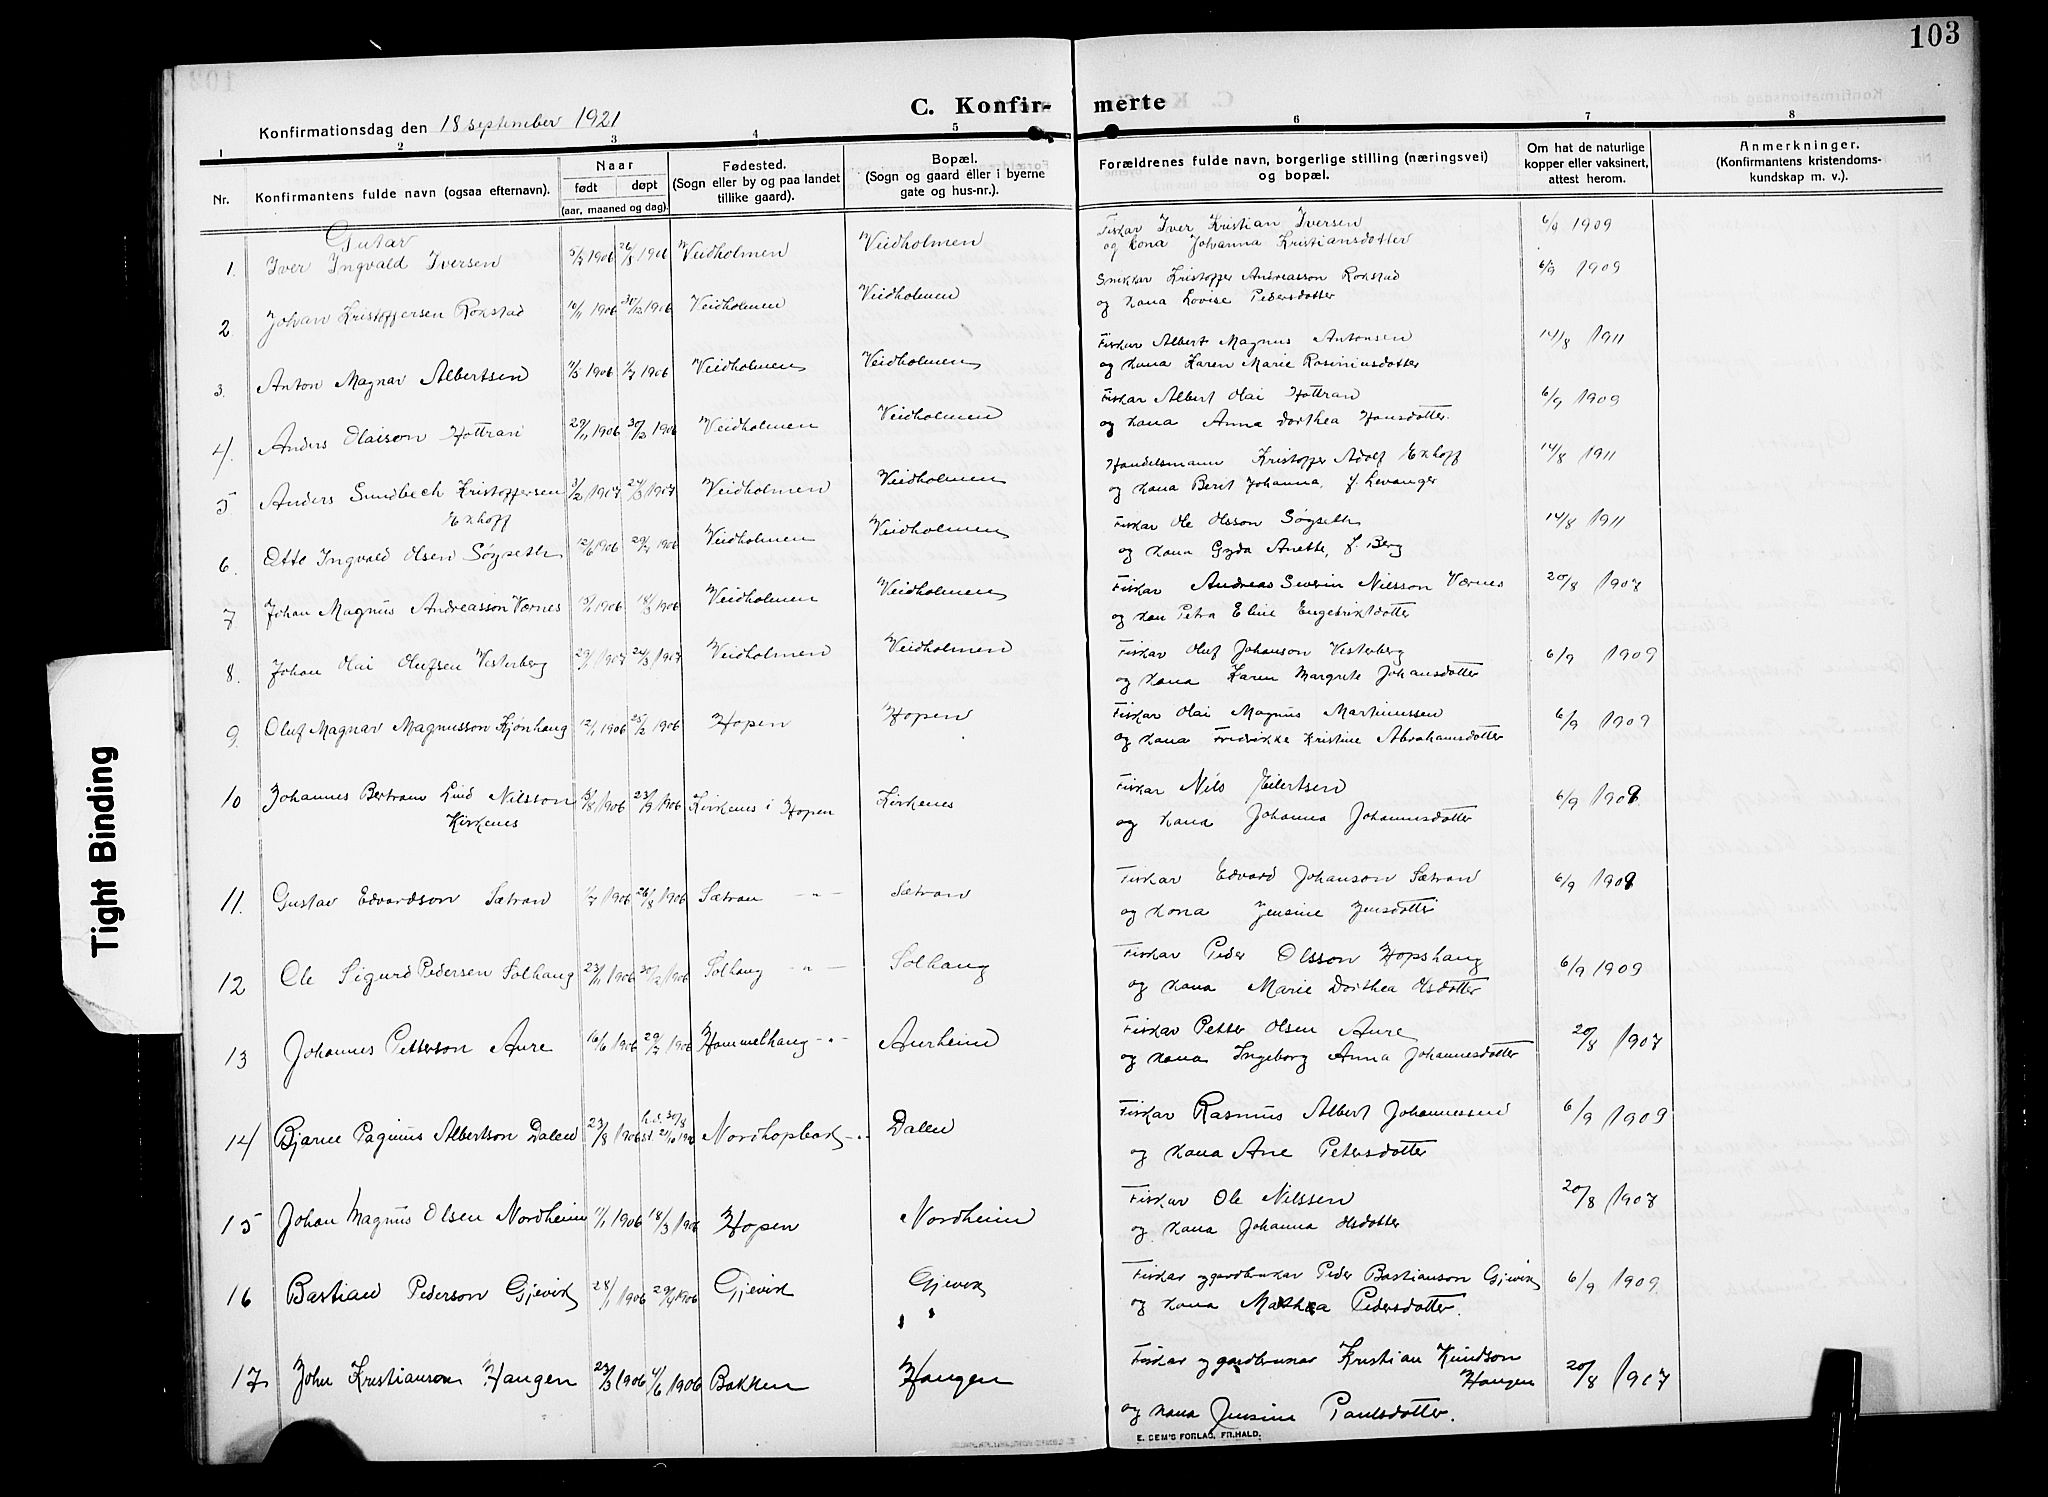 103
C. Konfirmerte
Konfirmationsdag den 18 september 1921
1 2 3 4 5 6 7 8
Nr. Konfirmantens fulde navn (ogsaa efternavn). Naar født døpt (aar, maaned og dag). Fødested. (Sogn eller by og paa landet tillike gaard). Bopæl. (Sogn og gaard eller i byerne gate og hus-nr.). Forældrenes fulde navn, borgerlige stilling (næringsvei) og bopæl. Om hat de naturlige kopper eller vaksinert, attest herom. Anmerkninger. (Konfirmantens kristendoms-kundskap m. v.).
Gutar
1. Iver Ingvald Iversen 1906 26/8 1906 Veidholmen Veidholmen Fiskar Iver Kristian Iversen 6/9 1909
og kona Johanna Kristiansdotter
2 Johan Kristoffersen Rokstad 1906 Veidholmen Veidholmen Snekkar Kristoffer Andreasson Rokstad 6/9 1909
og kona Lovise Pedersdotter
3. Anton Magnar Albertsen 1906 1906 Veidholmen Veidholmen Fiskar Albert Magnus Antonsen 14/8 1911
og kona Karen Marie Rasmusdotter
4. Anders Olaison Hottran 29/11 1906 1906 Veidholmen Veidholmen Fiskar Albert Olai Hottran 6/9 1909
og kona Anna Dorthea Hansdotter.
5 Anders Sundbech Kristoffersen 3/2 1907 24/3 1907 Veidholmen Veidholmen Handelsmann Kristoffer Adolf Ekhoff 14/8 1911
Ekhoff og kona Berit Johanna, f. Levanger
6. Otto Ingvald Olsen Søgseth 12/6 1906 29/7 1906 Veidholmen Veidholmen Fiskar Ole Olsson Søgseth 14/8 1911
og kona Gyda Anette, f. Berg
7 Johan Magnus Andreasson Værnes 1906 18/3 1906 Veidholmen Veidholmen Fiskar Andreas Severin Nilsson Værnes 20/8 1907
og kon Petra Eline Engebriktdotter
8. Johan Olai Olufsen Vesterberg 29/1 1907 24/3 1907 Veidholmen Veidholmen Fiskar Oluf Johanson Vesterberg 6/9 1909
og kona Karen Margrete Johansdotter
9. Oluf Magnar Magnusson Kjønhaug 12/1 1906 25/2 1906 Hopen Hopen Fiskar Olai Magnus Martinussen 6/9 1909
og kona Fredrikke Kristine Abrahamsdotter
10 Johannes Bertram Lind Nilsson 1906 23/9 1906 Kirkenes i Hopen Kirkenes Fiskar Nils Eilertsen 6/9 1909
Kirkenes og kona Johanna Johannesdotter
11. Gustav Edvardson Sætran 1/7 1906 26/8 1906 Sætran — " — Sætran Fiskar Edvard Johanson Sætran 6/9 1909
og kona Jensine Jensdotter
12 Ole Sigurd Pedersen Solhaug 23/11 1906 30/12 1906 Solhaug — " — Solhaug Fiskar Peder Olsson Hopshaug 6/9 1909
og kona Marie Dorthea Olsdotter
13 Johannes Petterson Aure 16/6 1906 29/7 1906 Hammelhaug - " - Aurheim Fiskar Petter Olsen Aure 20/8 1907
og kona Ingeborg Anna Johannesdotter
14 Bjarne Pagnus Albertson Dalen 23/8 1906 h.d. 30/8 st. 21/10 Nordhopbak - " Dalen Fiskar Rasmus Albert Johannessen 6/9 1909
og kona Ane Petersdotter
15 Johan Magnus Olsen Nordheim 11/1 1906 18/3 1906 Hopen Nordheim Fiskar Ole Nilssen 20/8 1907
og kona Johanna Olsdotter
16 Bastian Pederson Gjevik 28/1 1906 29/4 1906 Gjevik Gjevik Fiskar og gardbrukar Peder Bastianson Gjevik 6/9 1909
og kona Mathea Pedersdotter.
17 John Kristianson Haugen 23/3 1906 4/6 1906 Bakken Haugen Fiskar og gardbrukar Kristian Knudson Haugen 20/8 1907
og kona Jensine Paulsdotter.
E. SEM'S FORLAG, FR.HALD.
Tight Binding